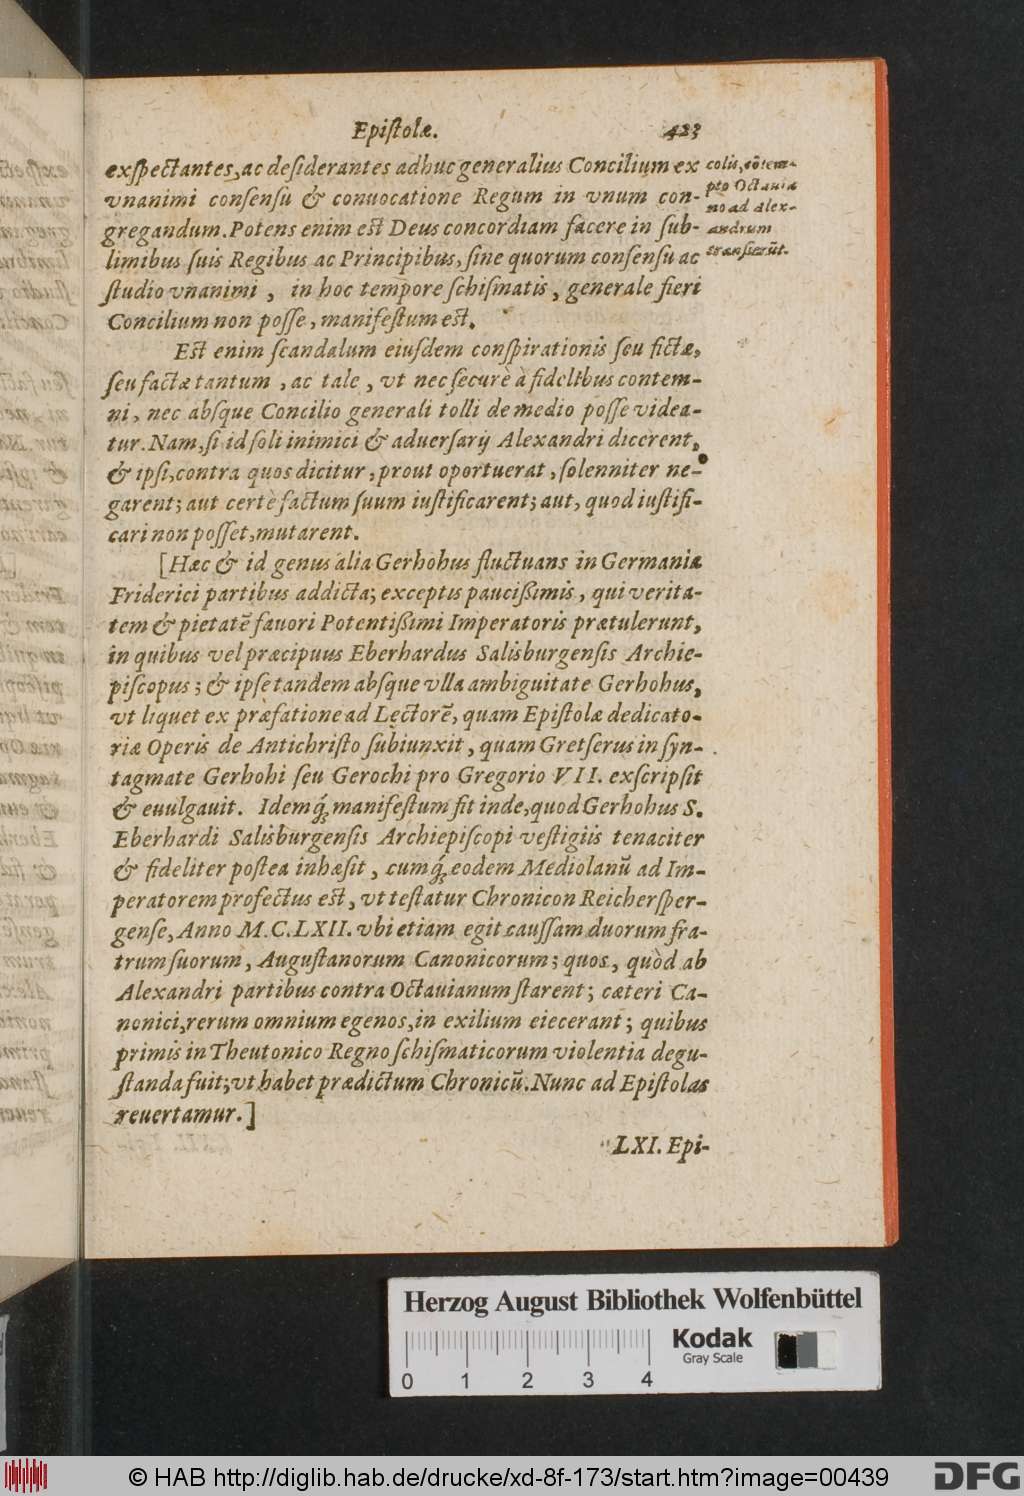 Epiſtolæ. 423
exſpectantes, ac deſiderantes adhuc generalius Concilium ex
vnanimi conſenſu & conuocatione Regum in vnum con-
gregandum. Potens enim est Deus concordiam facere in ſub-
limibus ſuis Regibus ac Principibus, ſine quorum conſenſu ac
ſtudio vnanimi, in hoc tempore ſchiſmatis, generale fieri
Concilium non poſſe, manifeſtum est.
colis, cōtem-
pto Octauia
no ad Alex-
andrum
tranſierūt.
Est enim ſcandalum eiuſdem conſpirationis ſeu fictæ,
ſeu factæ tantum, ac tale, vt nec ſecurè à fidelibus contem-
ni, nec absque Concilio generali tolli de medio poſſe videa-
tur. Nam, ſi id ſoli inimici & aduerſarij Alexandri dicerent,
& ipſi, contra quos dicitur, prout oportuerat, ſolenniter ne-
garent; aut certè factum ſuum iuſtificarent; aut, quod iuſtifi-
cari non poſſet, mutarent.
[Hæc & id genus alia Gerhohus fluctuans in Germania
Friderici partibus addicta; exceptis pauciſſimis, qui verita-
tem & pietatē fauori Potentiſſimi Imperatoris prætulerunt,
in quibus vel præcipuus Eberhardus Salisburgenſis Archie-
piſcopus; & ipſe tandem absque vlla ambiguitate Gerhohus,
vt liquet ex præfatione ad Lectorē, quam Epiſtolæ dedicato-
riæ Operis de Antichriſto ſubiunxit, quam Gretſerus in ſyn-
tagmate Gerhohi ſeu Gerochi pro Gregorio VII. exſcripſit
& euulgauit. Idemq́; manifeſtum fit inde, quod Gerhohus S.
Eberhardi Salisburgenſis Archiepiſcopi veſtigiis tenaciter
& fideliter poſtea inhæſit, cumq́; eodem Mediolanū ad Im-
peratorem profectus est, vt teſtatur Chronicon Reicherſper-
genſe, Anno M.C.LXII. vbi etiam egit cauſſam duorum fra-
trum ſuorum, Auguſtanorum Canonicorum; quos, quòd ab
Alexandri partibus contra Octauianum ſtarent; cæteri Ca-
nonici, rerum omnium egenos, in exilium eiecerant; quibus
primis in Theutonico Regno ſchiſmaticorum violentia degu-
ſtanda fuit; vt habet prædictum Chronicū. Nunc ad Epiſtolas
reuertamur.]
LXI. Epi-
Herzog August Bibliothek Wolfenbüttel
Kodak
Gray Scale
0 1 2 3 4
© HAB http://diglib.hab.de/drucke/xd-8f-173/start.htm?image=00439
DFG